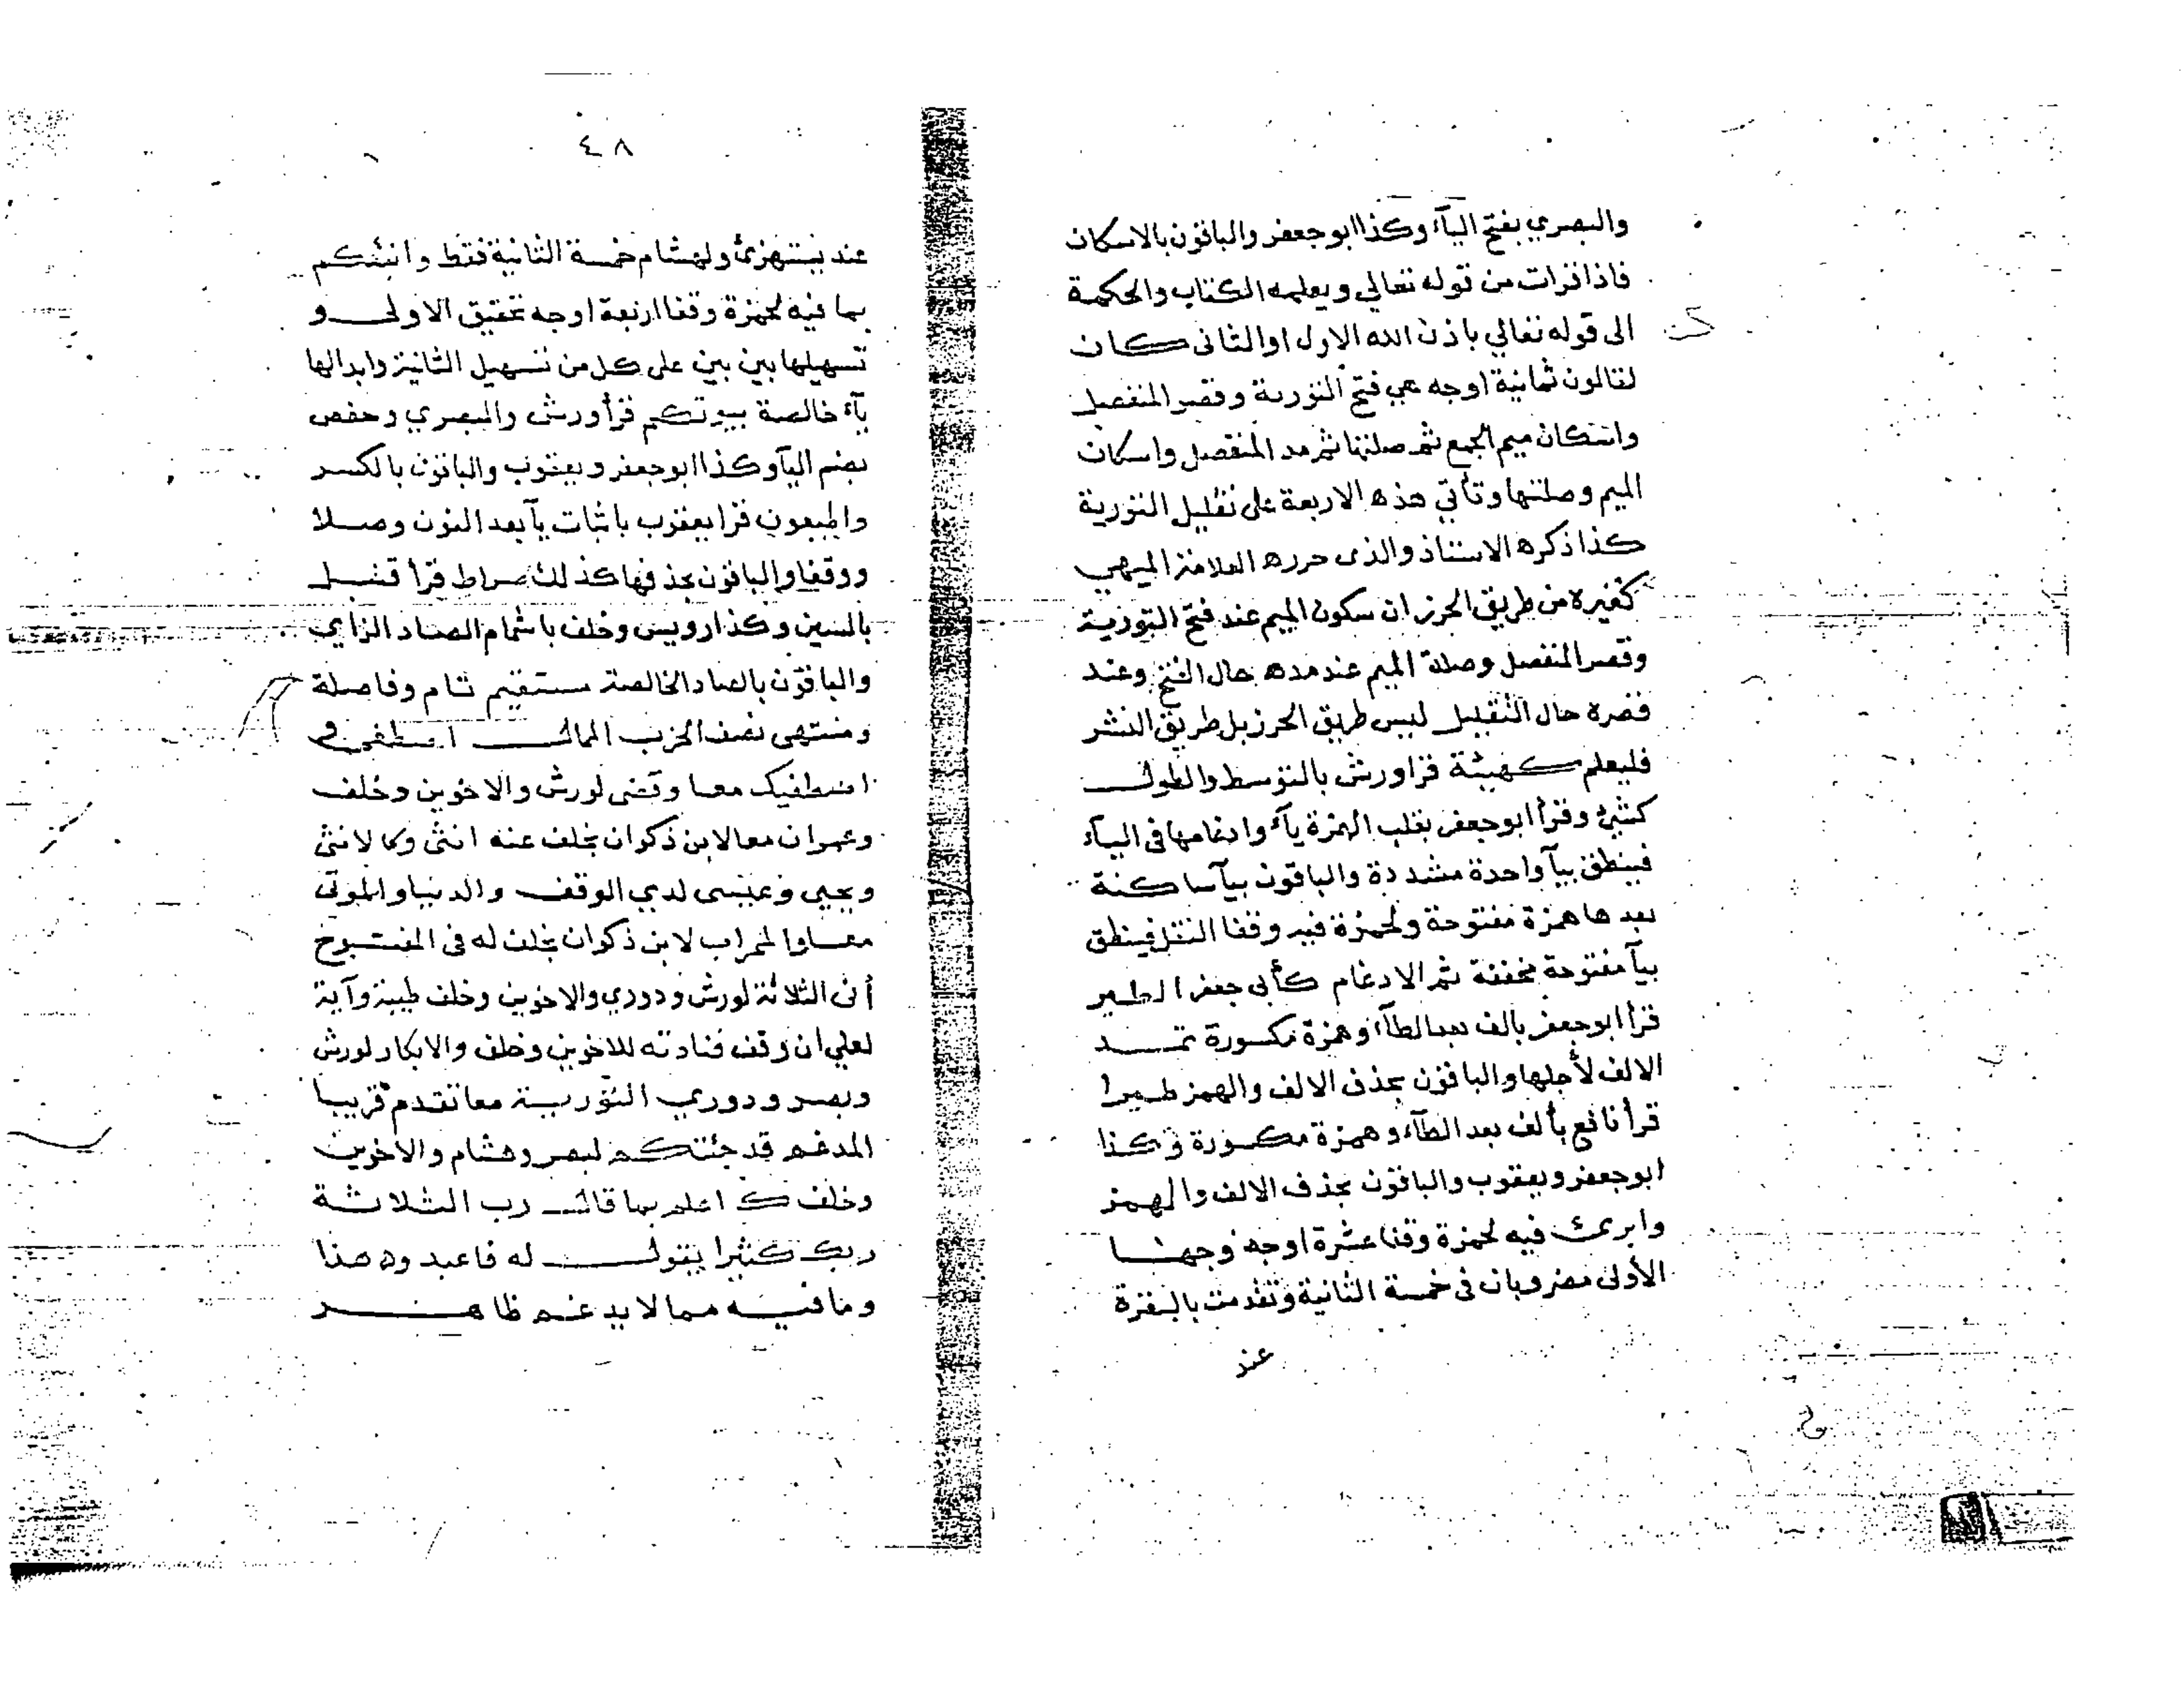 والبصري بفتح اليآء وكذا ابو جعفر والباقون بالاسكان
فاذا قرات من قوله تعالي ويعلمه الكتاب والحكمة
الى قوله تعالي باذن الله الاول او الثاني كان
لقالون ثمانية اوجه هي فتح التورىة وقصر المنفصل
واسكان ميم الجمع ثم صلتها ثم مد المنفصل واسكان
الميم وصلتها وتأتي هذه الاربعة على تقليل التورية
كذا ذكره الاستاذ والذى حرره العلامة الميهي
كغيره من طريق الحرز ان سكون الميم عند فتح التورية
وقصر المنفصل وصلة الميم عند مده حال الفتح وعند
قصره حال التقليل ليس طريق الحرز بل طريق النشر
فليعلم كهيئة قرا ورش بالتوسط والطول
كشئ وقرأ ابو جعفر بقلب الهمزة يآء وادغامها في اليآء
فينطق بيآ واحدة مشددة والباقون بيآ ساكنة
بعدها همزة مفتوحة ولحمزة فيه وقفا النقل فينطق
بيآ مفتوحة مخففة ثم الادغام كأبي جعفر الطير
قرأ ابو جعفر بالف بعد الطآء وهمزة مكسورة تمد
الالف لأجلها والباقون بحذف الالف والهمز طيرا
قرأ نافع بألف بعد الطآء وهمزة مكسورة وكذا
ابو جعفر ويعقوب والباقون بحذف الالف والهمز
وابرئ فيه لحمزة وقفا عشرة اوجه وجها
الأولى مضروبان في خمسة الثانية وتقدمت بالبقرة
عند
٤٨
عند يستهزئ ولهشام خمسة الثانية فقط وانبئكم
بما فيه لحمزة وقفا اربعة اوجه تحقيق الاولى و
تسهيلها بين بين على كل من تسهيل الثانية وابدالها
يآء خالصة بيوتكم قرأ ورش والبصري وحفص
بضم اليآ وكذا ابو جعفر ويعقوب والباقون بالكسر
واطيعون قرا يعقوب باثبات يآ بعد النون وصلا
ووقفا والباقون بحذفها كذلك صراط قرأ قنبل
بالسين وكذا رويس وخلف باشمام الصاد الزاي
والباقون بالصاد الخالصة مستقيم تام وفاصلة
ومنتهى نصف الحزب الممال اصطفى و
اصطفيك معا وقضى لورش والاخوين وخلف
وعمران معا لابن ذكوان بخلف عنه انثى وكالانثى
ويحيى وعيسى لدي الوقف والدنيا والموتى
معا والمحراب لابن ذكوان بخلف له في المفتوح
أنى الثلاثة لورش ودوري والاخوين وخلف طيبة وآية
لعلي ان وقف فنادته للاخوين وخلف والابكار لورش
وبصر ودوري التورية معا تقدم قريبا
المدغم قد جئتكم لبصر وهشام والاخوين
وخلف ك اعلم بما قال رب الثلاثة
ربك كثيرا يقول له فاعبدوه هذا
وما فيه مما لا يدغم ظاهر